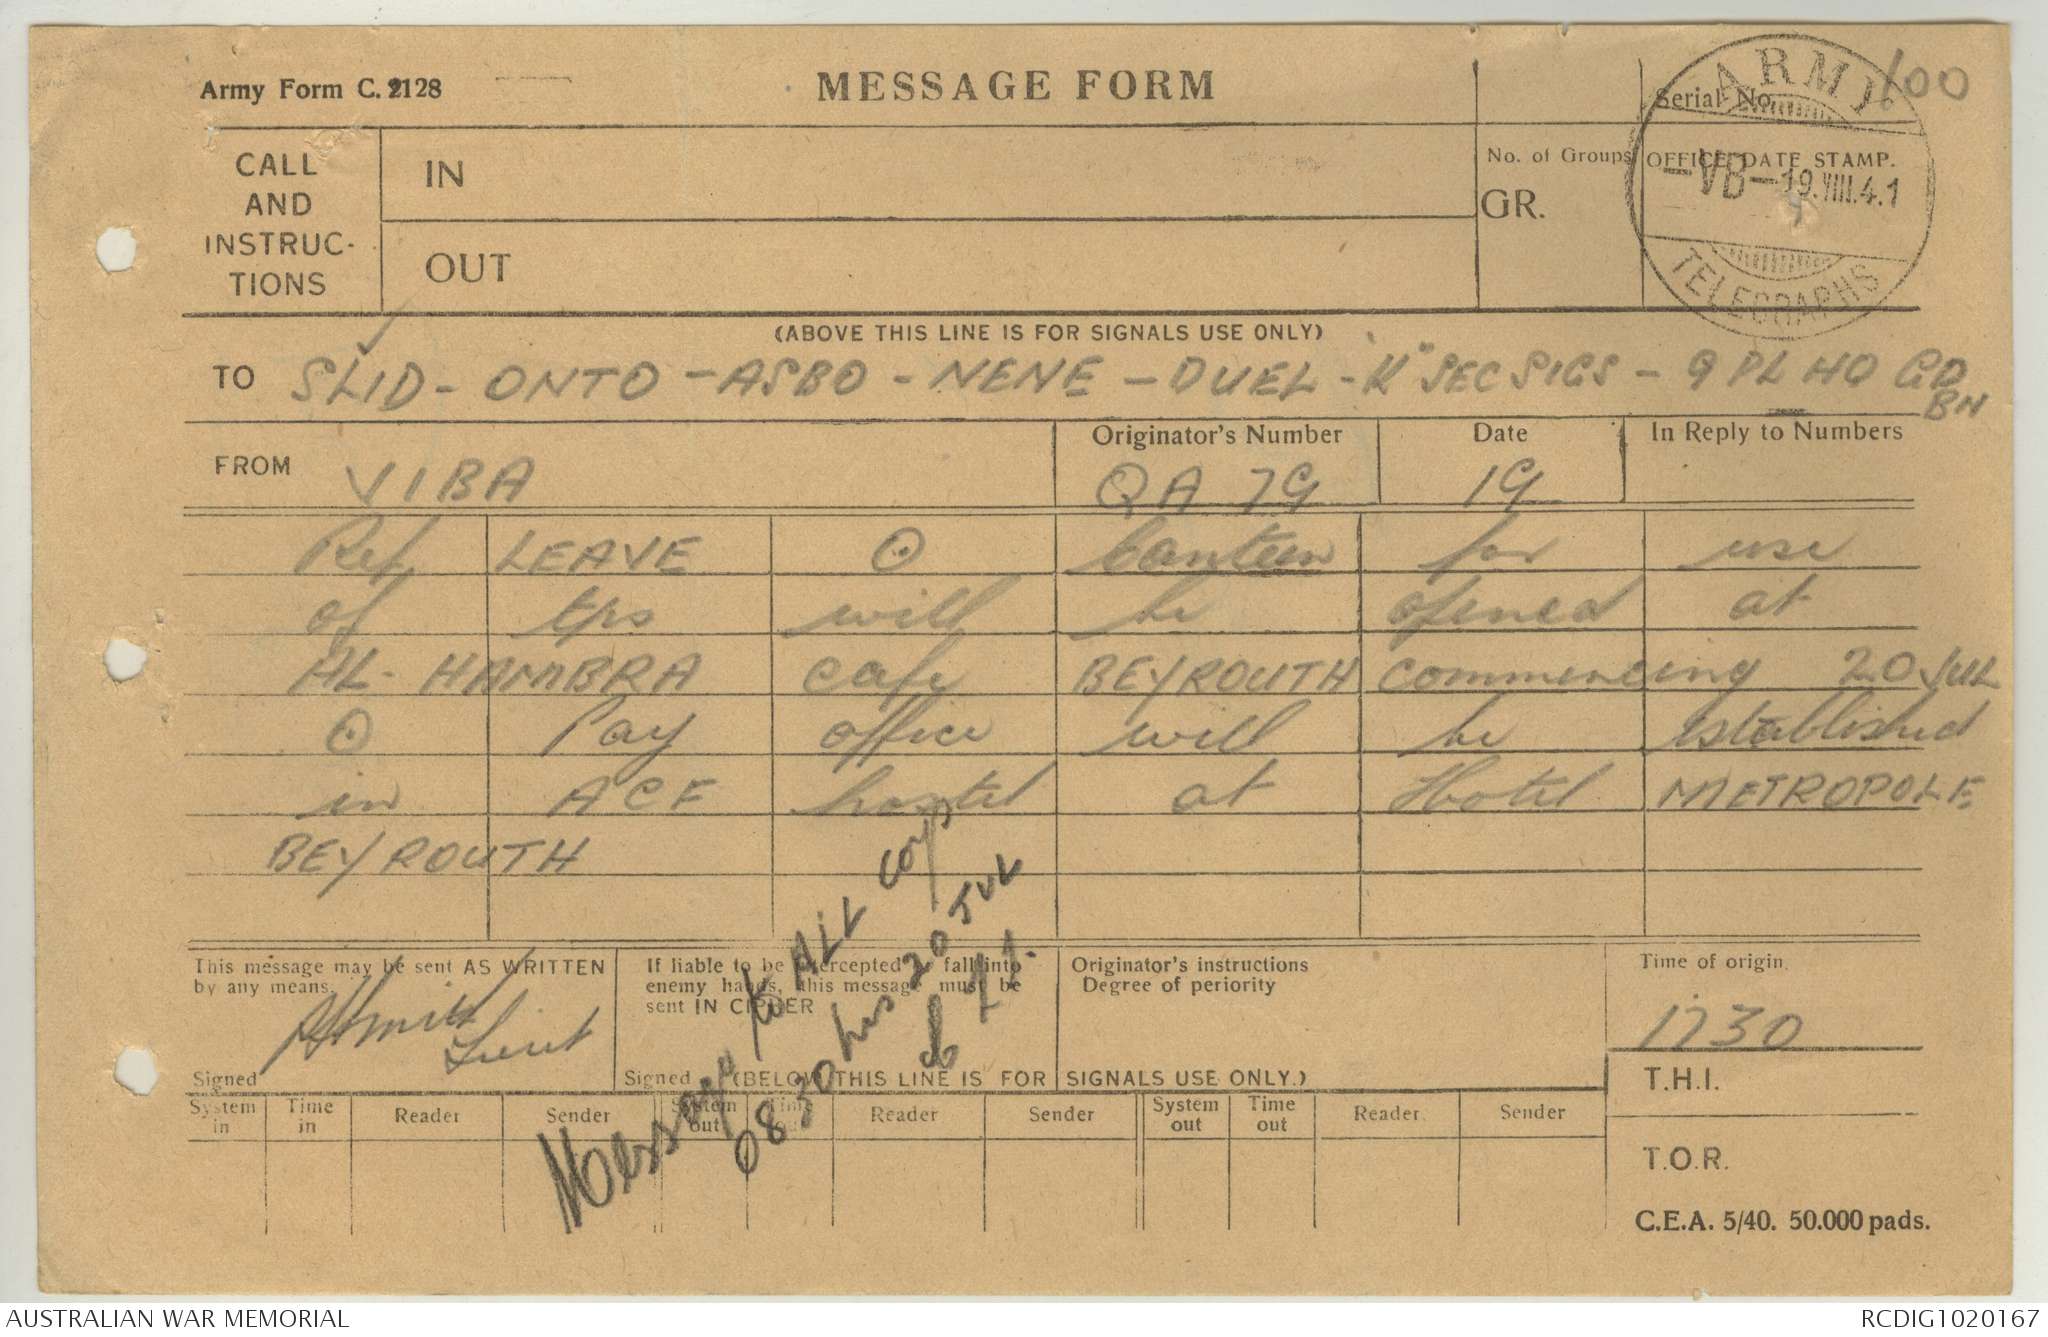 Army Form C. 2128
MESSAGE FORM
Serial No.
100
ARMY TELEGRAPHS
CALL AND INSTRUC-TIONS
IN
OUT
No. of Groups
GR.
OFFICE DATE STAMP.
-VB- 19.VIII.41
(ABOVE THIS LINE IS FOR SIGNALS USE ONLY)
TO SLID - ONTO - ASBO - NENE - DUEL - "K" SEC SIGS - 9 PL HQ GD BN
FROM VIBA
Originator's Number QA 79
Date 19
In Reply to Numbers
Ref LEAVE ⊙ Canteen for use
of tps will be opened at
AL-HAMBRA Cafe BEYROUTH commencing 20 JUL
⊙ Pay office will be established
in ACF hostel at Hotel METROPOLE
BEYROUTH
Message to ALL coys
0830 hrs 20 JUL
41.
This message may be sent AS WRITTEN by any means.
Lieut
Signed
If liable to be intercepted or fall into enemy hands, this message must be sent IN CIPHER
Signed
Originator's instructions
Degree of periority
Time of origin.
1730
(BELOW THIS LINE IS FOR SIGNALS USE ONLY.)
T.H.I.
System in Time in Reader Sender System out Time out Reader Sender System out Time out Reader Sender
T.O.R.
C.E.A. 5/40. 50.000 pads.
AUSTRALIAN WAR MEMORIAL
RCDIG1020167